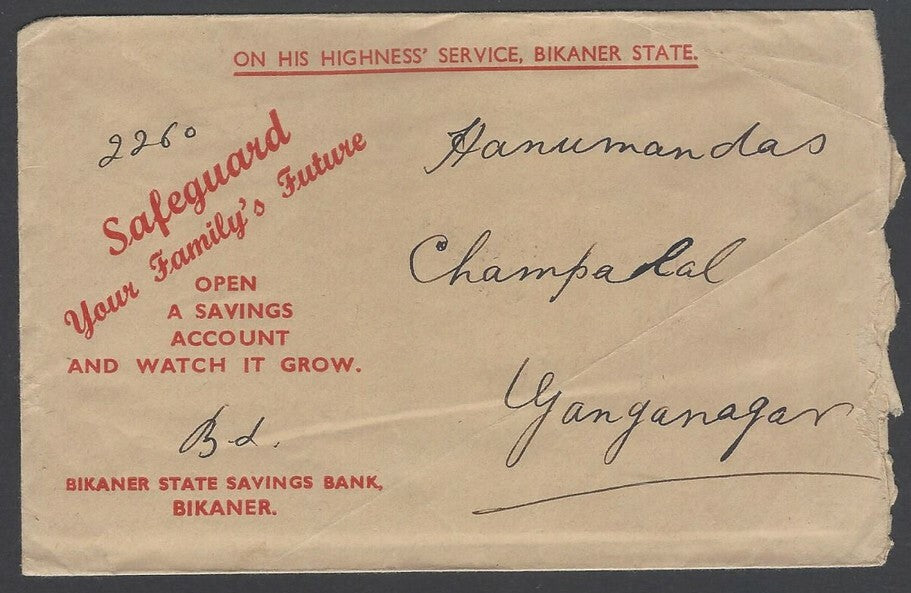 ON HIS HIGHNESS' SERVICE, BIKANER STATE.
2260
Safeguard
Your Family's Future
OPEN
A SAVINGS
ACCOUNT
AND WATCH IT GROW.
Bd.
BIKANER STATE SAVINGS BANK,
BIKANER.
Hanumandas
Champalal
Ganganagar